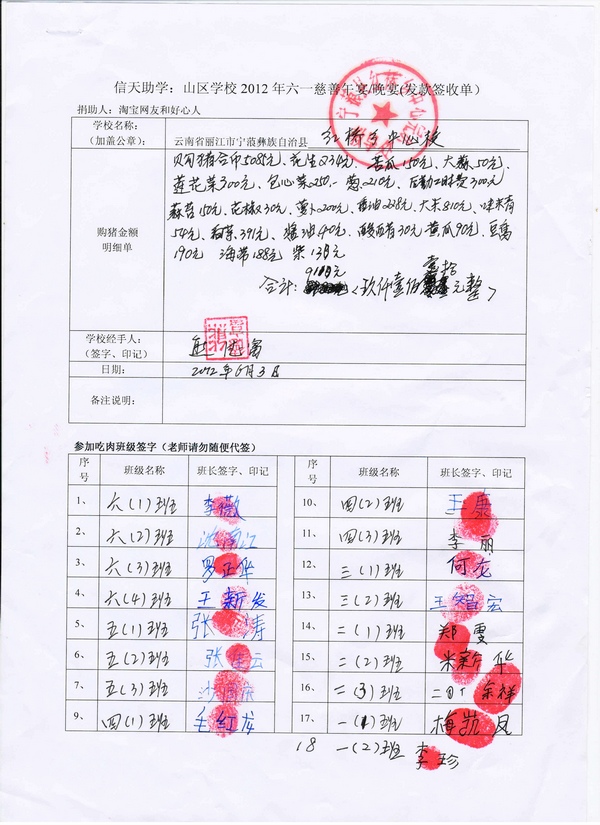 信天助学：山区学校2012年六一慈善午宴/晚宴(发款签收单)
捐助人：淘宝网友和好心人
学校名称：
（加盖公章）：
云南省丽江市宁蒗彝族自治县 红桥乡中心校
购猪金额
明细单
5085元、花生234元、苦瓜150元、大蒜50元、
莲花菜300元、包心菜250、葱210元、后勤工时费300元
蒜苔150元、花椒30元、萝卜200元、228元、大米810元、味米有
54元、391元、酱油90元、30元黄瓜90元、豆腐
190元 海带188元 柴13元
9110元
合计：（玖仟壹佰壹拾元整）
学校经手人：
（签字、印记）
日期： 2012年6月3日
备注说明：
参加吃肉班级签字（老师请勿随便代签）
序号 班级名称 班长签字、印记 序号 班级名称 班长签字、印记
1、 六（1）班 李薇 10、 四（2）班 王康
2、 六（2）班 11、 四（3）班 李丽
3、 六（3）班 罗正华 12、 三（1）班 何龙
4、 六（4）班 王新发 13、 三（2）班 王智宏
5、 五（1）班 张涛 14、 二（1）班 郑雯
6、 五（2）班 张云 15、 二（2）班 米新华
7、 五（3）班 16、 二（3）班 余祥
9、 四（1）班 毛红龙 17、 一（1）班 梅凯凤
18 一（2）班 李珍